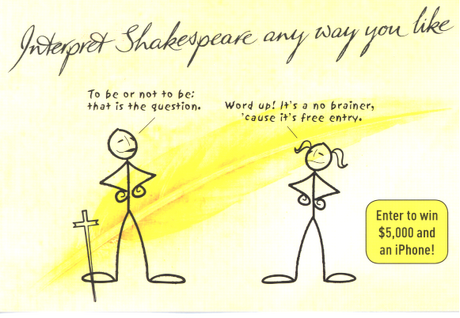 Interpret Shakespeare any way you like
To be or not to be:
that is the question.
Word up! It's a no brainer,
'cause it's free entry.
Enter to win
$5,000 and
an iPhone!